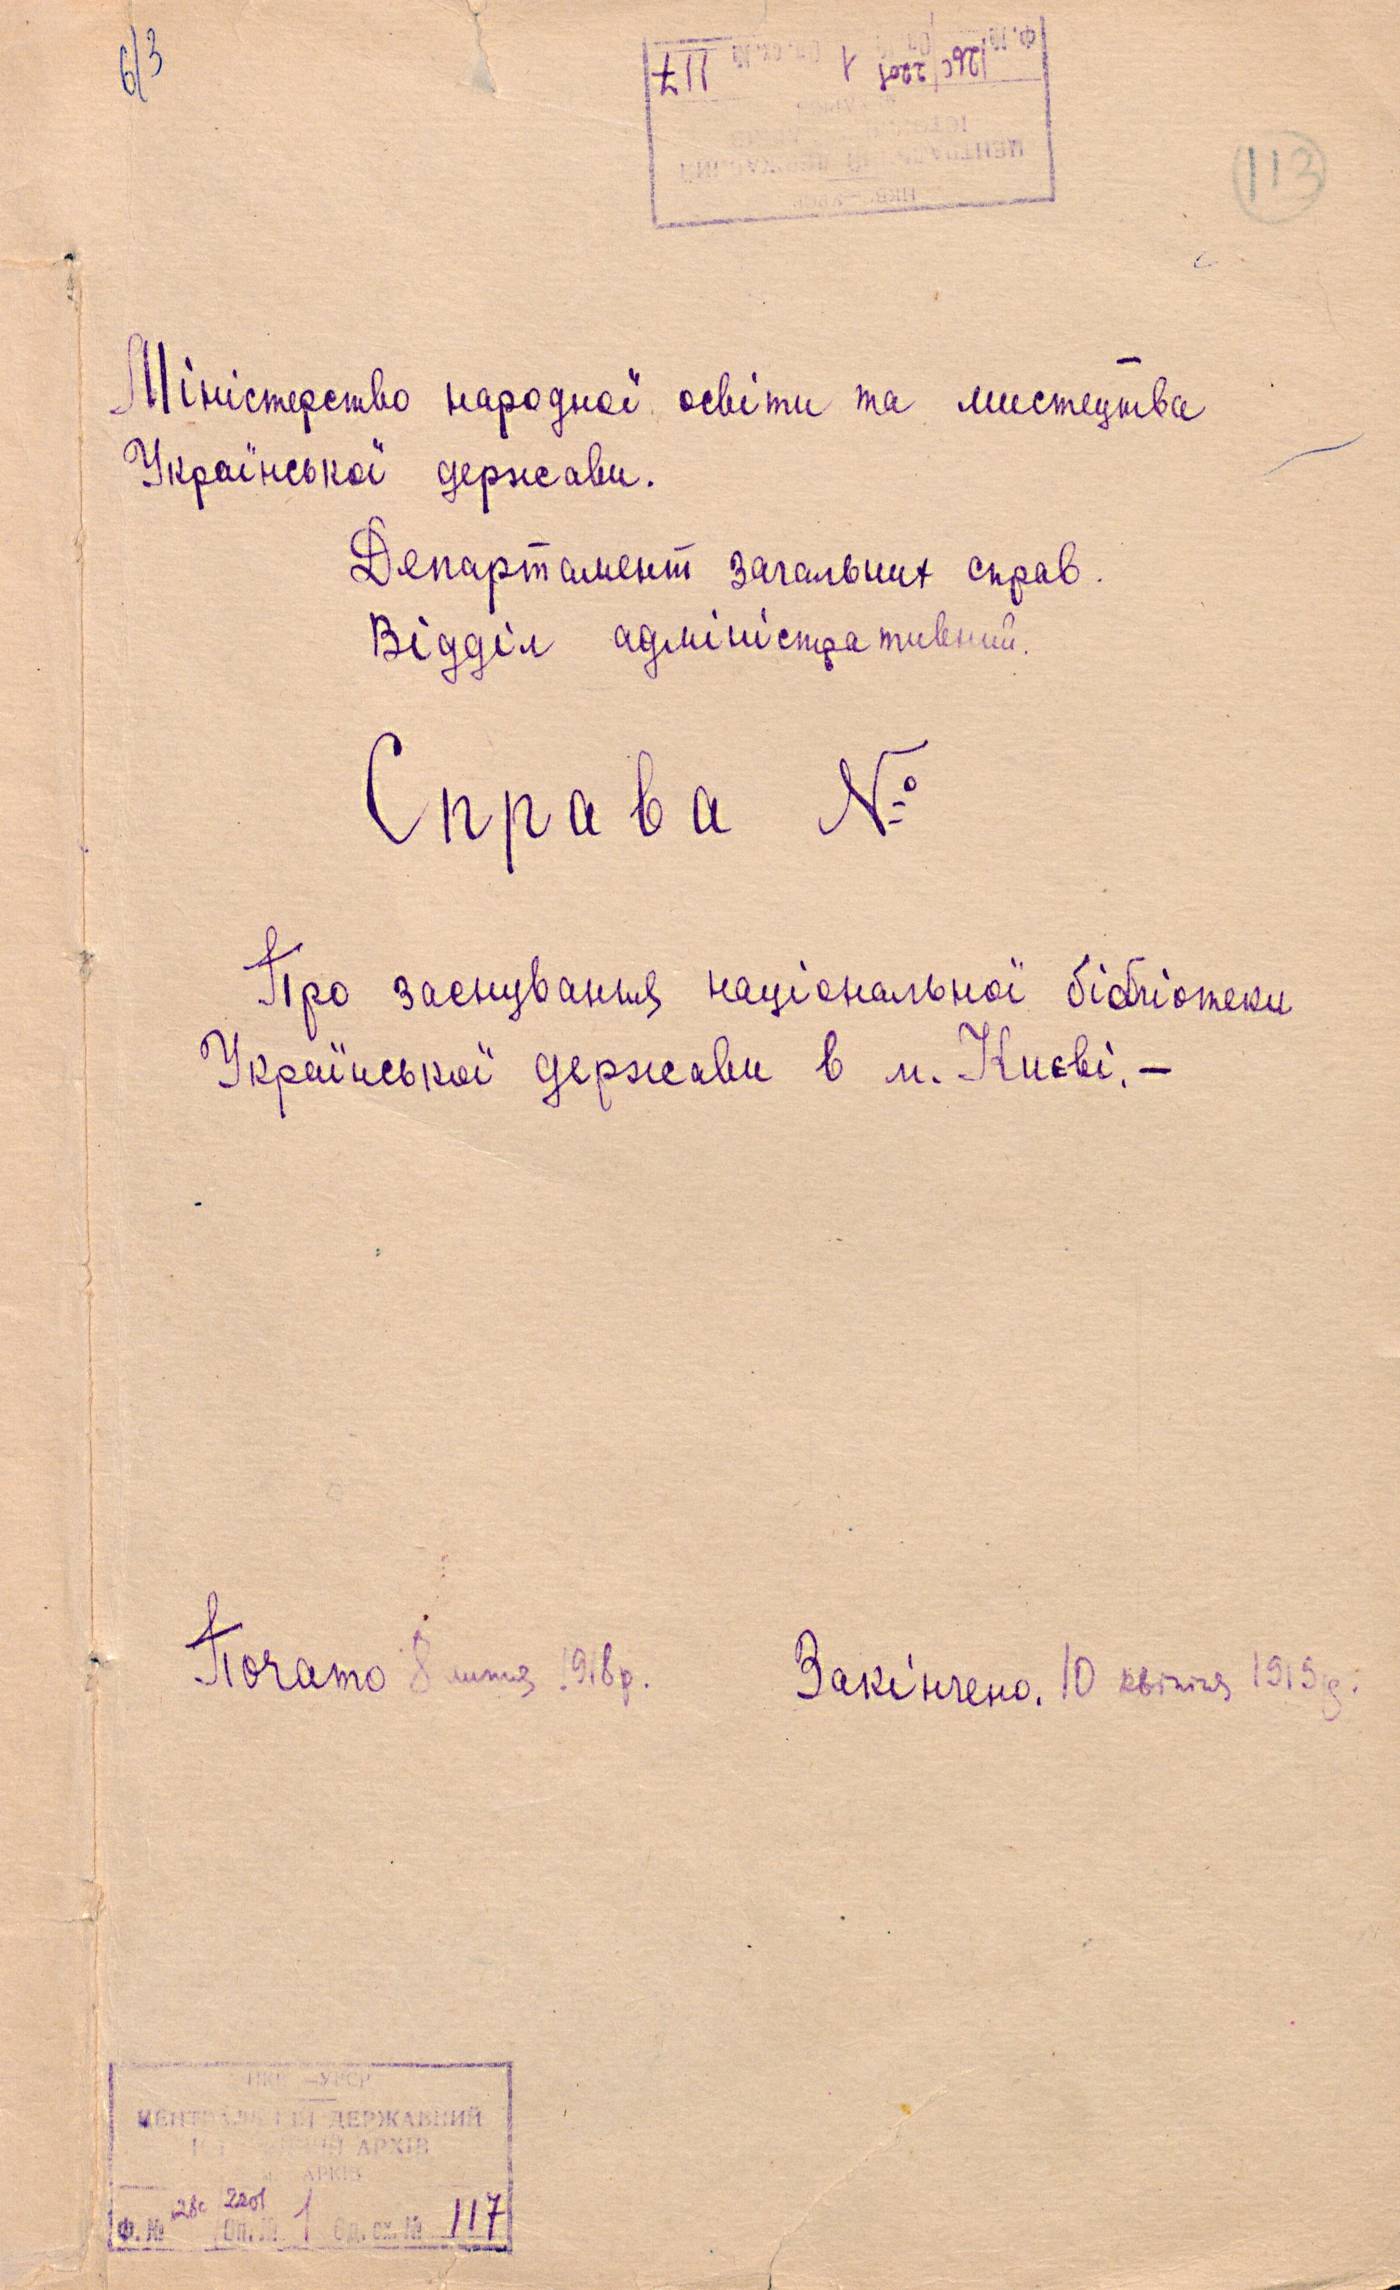 б/3
113
Міністерство народної освіти та мистецтва
Української держави.
Департамент загальних справ.
Відділ адміністративний.
Справа №
Про заснування національної бібліотеки
Української держави в м. Києві. –
Почато 8 липня 1918 р.
Закінчено. 10 квітня 1919 р.
НКВ – УРСР
ЦЕНТРАЛЬНИЙ ДЕРЖАВНИЙ
АРХІВ
Ф. № 2201 Оп. № 1 Од. сх. № 117